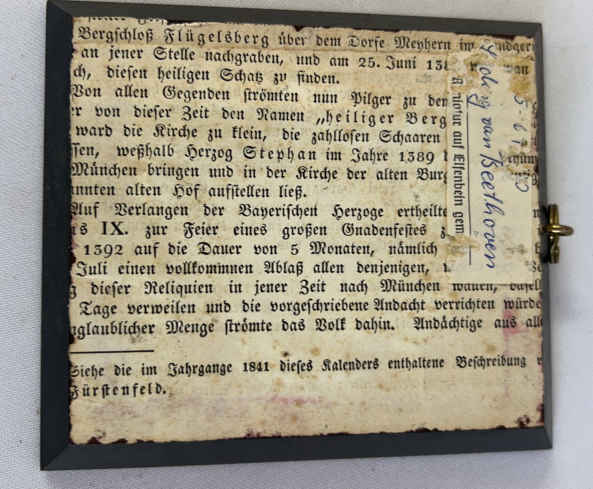 Bergschloß Flügelsberg über dem Dorfe Meyhern im
an jener Stelle nachgraben, und am 25. Juni
ch, diesen heiligen Schatz zu finden.
Von allen Gegenden strömten nun Pilger zu
er von dieser Zeit den Namen „heiliger Berg
ward die Kirche zu klein, die zahllosen Schaaren
ssen, weßhalb Herzog Stephan im Jahre 1389
München bringen und in der Kirche der alten Burg
nnten alten Hof aufstellen ließ.
Auf Verlangen der Bayerischen Herzoge ertheilte
s IX. zur Feier eines großen Gnadenfestes
1392 auf die Dauer von 5 Monaten, nämlich
Juli einen vollkommnen Ablaß allen denjenigen,
g dieser Reliquien in jener Zeit nach München
Tage verweilen und die vorgeschriebene Andacht verrichten würde
nglaublicher Menge strömte das Volk dahin. Andächtige aus alle
Siehe die im Jahrgange 1841 dieses Kalenders enthaltene Beschreibung
Fürstenfeld.
van Beethoven
auf Elfenbein gem